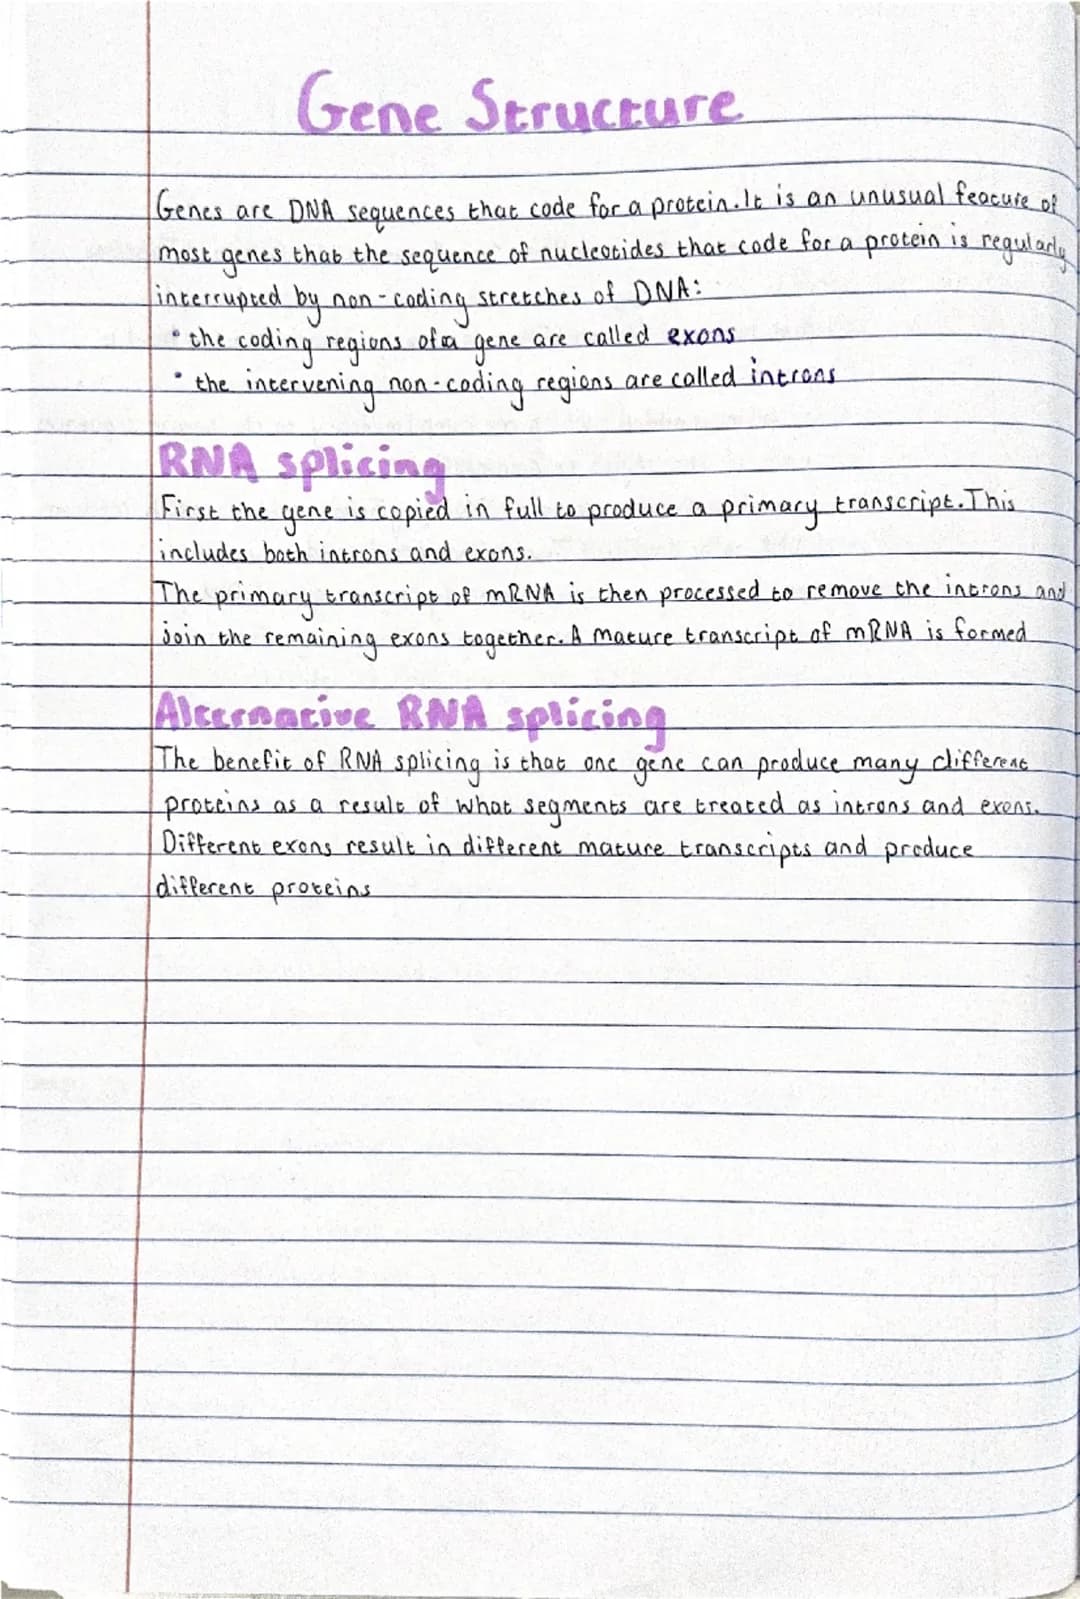 Gene Structure
Genes are DNA sequences that code for a protein. It is an unusual feacure of
most genes that the sequence of nucleotides that code for a protein is regularly
interrupted by non-coding stretches of DNA:
• the coding regions of a gene are called exons
• the intervening non-coding regions are called introns
RNA splicing
First the gene is copied in full to produce a primary transcript. This
includes both introns and exons.
The primary transcript of mRNA is then processed to remove the introns and
join the remaining exons together. A mature transcript of mRNA is formed
Alternative RNA splicing
The benefit of RNA splicing is that one gene can produce many different
proteins as a result of what segments are treated as introns and exons.
Different exons result in different mature transcripts and produce
different proteins